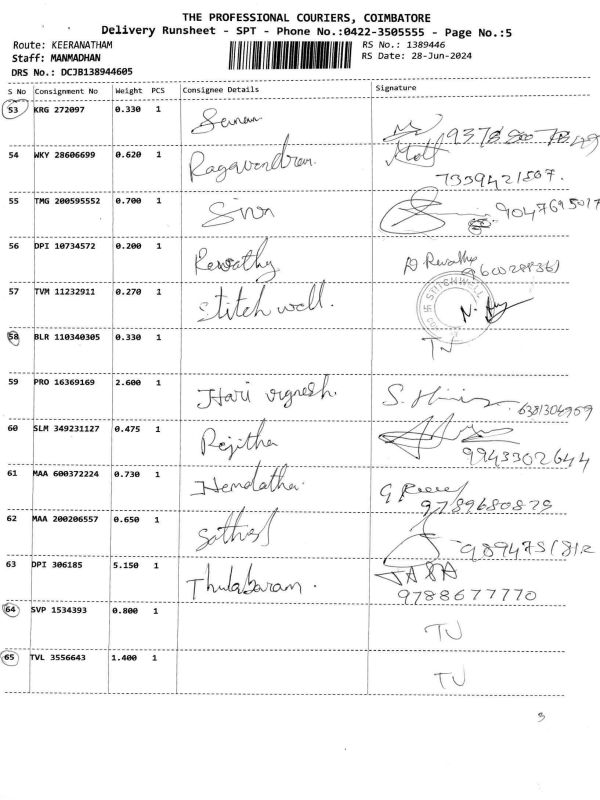 THE PROFESSIONAL COURIERS, COIMBATORE
Delivery Runsheet - SPT - Phone No.:0422-3505555 - Page No.:5
Route: KEERANATHAM
RS No.: 1389446
Staff: MANMADHAN
RS Date: 28-Jun-2024
DRS No.: DCJB138944605
S No Consignment No Weight PCS Consignee Details Signature
53 KRG 272097 0.330 1
54 WKY 28606699 0.620 1 Ragavendran.
7339421807.
55 TMG 200595552 0.700 1 Siva 9047695017
56 DPI 10734572 0.200 1 Revathy D Revathy
57 TVM 11232911 0.270 1 Stitch well. STITCHWELL
58 BLR 110340305 0.330 1 TJ
59 PRO 16369169 2.600 1 Hari vignesh.
6381306969
60 SLM 349231127 0.475 1 Rejitha
9943302644
61 MAA 600372224 0.730 1 Hemalatha.
9789680829
62 MAA 200206557 0.650 1 Sathish
9894751812
63 DPI 306185 5.150 1 Thulabaram.
9788677770
64 SVP 1534393 0.800 1 TJ
65 TVL 3556643 1.400 1 TJ
3